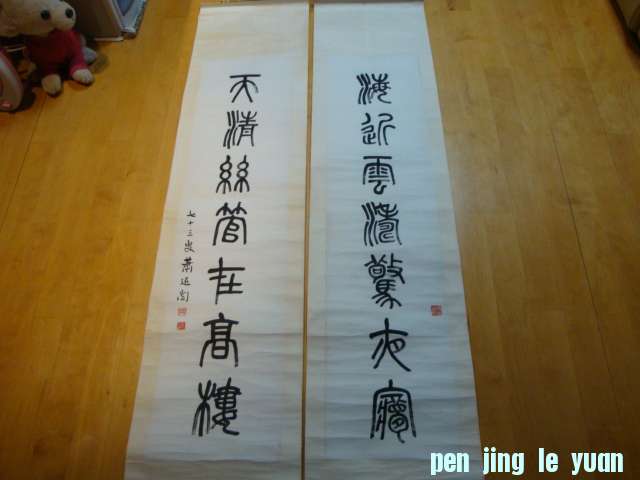 海近雲濤驚夜夢
天清絲管在高樓
七十三叟蕭退闇
pen jing le yuan